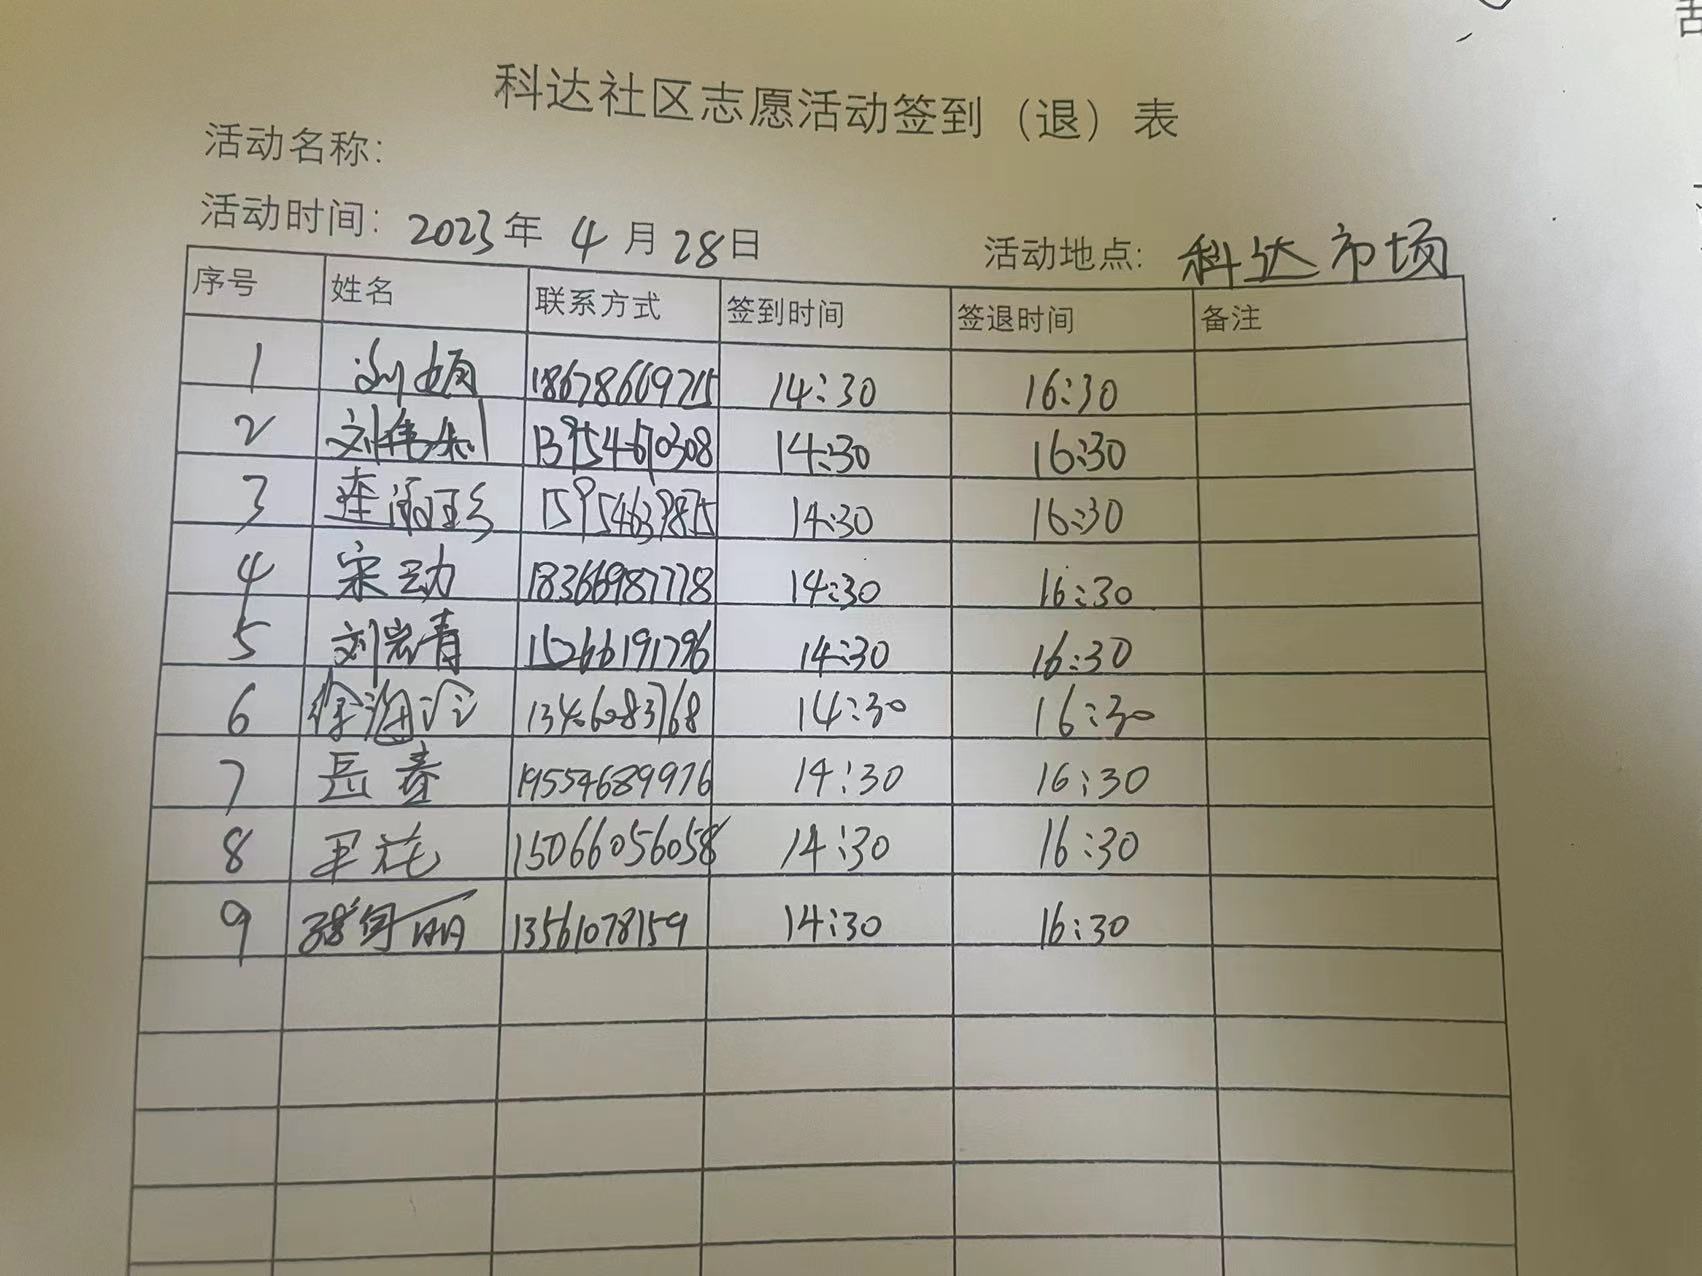 科达社区志愿活动签到（退）表
活动名称:
活动时间: 2023年 4月28日 活动地点: 科达市场
序号 姓名 联系方式 签到时间 签退时间 备注
1 刘娟 18678669715 14:30 16:30
2 刘伟利 13954670308 14:30 16:30
3 15954639875 14:30 16:30
4 宋云动 18366987778 14:30 16:30
5 刘宏青 15266191796 14:30 16:30
6 徐海 13406083768 14:30 16:30
7 岳春 19554689976 14:30 16:30
8 王花 15066056058 14:30 16:30
9 丽 13561078159 14:30 16:30